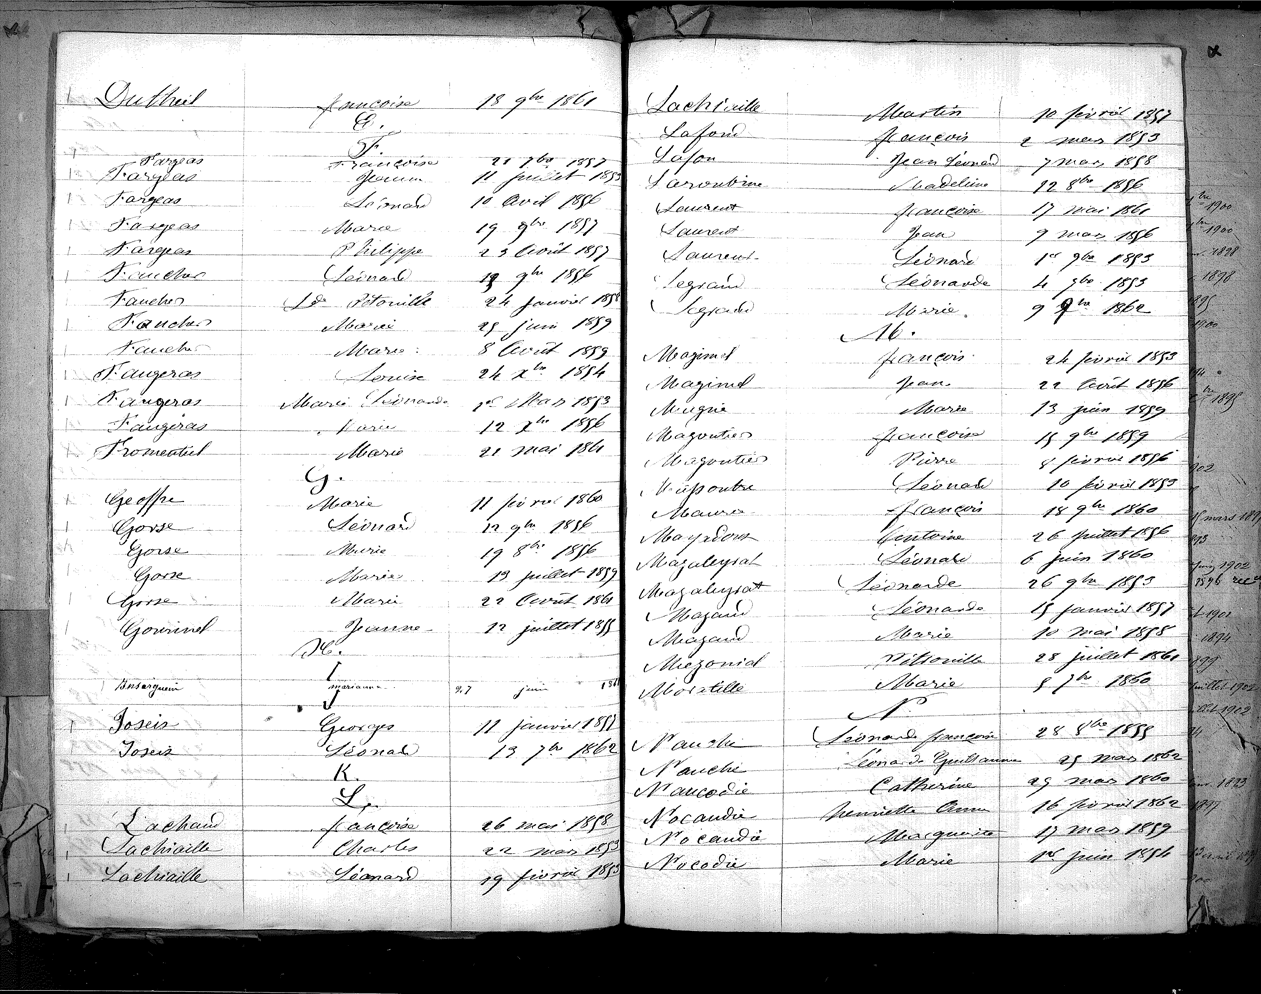 Dutheil françoise 18 9bre 1861
E.
F.
Fargeas Françoise 21 7bre 1857
Fargeas Jeanne 11 juillet 1853
Fargeas Léonard 10 Avril 1856
Fargeas Marie 19 9bre 1857
Fargeas Philippe 23 Août 1857
Faucher Léonard 13 9bre 1856
Faucher Lde Pétronille 24 janvier
Faucher Marie 25 juin 1859
Faucher Marie 8 Août 1859
Faugeras Louise 24 Xbre 1854
Faugeras Marie Léonarde 1er Mars 1853
Faugeras Marie 12 Xbre 1856
Fromentiel Marie 21 mai 1861
G.
Geoffre Marie 11 février 1860
Gorse Léonard 12 9bre 1856
Gorse Marie 19 8bre 1856
Gorse Marie 13 juillet 1859
Gorse Marie 22 Août 1861
Gouninel Jeanne 12 juillet 1855
H.
I
marianne 27 juin
J
Joseis Georges 11 janvier 1857
Joseis Léonard 13 7bre 1862
K.
L.
Lachaud françoise 26 mai 1858
Lachiaille Charles 22 mars 1853
Lachiaille Léonard 19 février 1853
Lachiaille Martin 10 février 1857
Lafond françois 2 mars 1853
Lafon Jean Léonard 7 mars 1858
Laroubine Madeleine 12 8bre 1856
Laurent françoise 17 mai 1861
Laurent Jean 9 mars 1856
Laurent Léonard 1er 9bre 1853
Legrand Léonarde 4 9bre 1853
Legrand Marie. 9 9bre 1862
M.
Maginel françois 24 février 1853
Maginel Jean 22 Août 1856
Magne Marie 13 juin 1859
Magoutier françoise 15 9bre 1859
Magoutier Pierre 8 février 1856
Malsoubre Léonard 10 février 1853
Maure françois 18 9bre 1860
Mayrdoux Antoine 26 juillet 1856
Mazaleyrat Léonard 6 juin 1860
Mazaleyrat Léonarde 26 9bre 1853
Mazaud Léonarde 15 janvier 1857
Mazaud Marie 10 mai 1858
Mezonid Pétronille 28 juillet 1861
Moratille Marie 5 7bre 1860
N.
Nauche Léonarde françoise 28 8bre 1855
Nauche Léonarde Guillaumine 25 mars 1862
Naucodie Catherine 29 mars 1860
Nocaudie henriette Anne 16 février 1862
Nocaudie Marguerite 17 mars 1859
Nocodie Marie 1er juin 1854